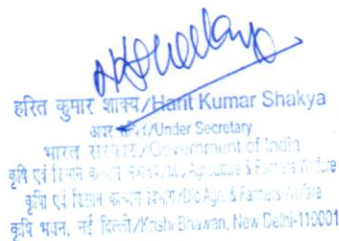 हरित कुमार शाक्य/Harit Kumar Shakya
अवर सचिव/Under Secretary
भारत सरकार/Government of India
कृषि एवं किसान कल्याण Agriculture & Farmers Welfare
कृषि एवं किसान कल्याण विभाग/D/o Agri. & Farmers Welfare
कृषि भवन, नई दिल्ली/Krishi Bhawan, New Delhi-110001